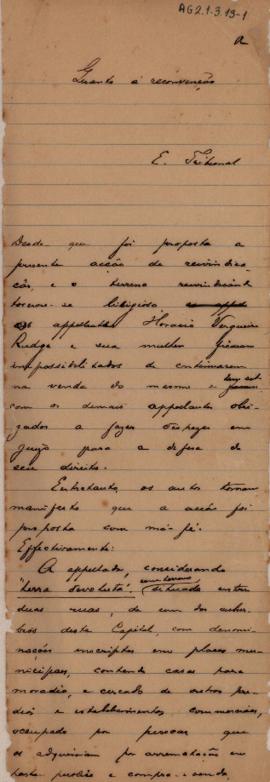 AG2.1.3.13-1
Quanto á reconvenção
E. Tribunal
Desde que foi proposta a
presente acção de reivindica-
ção, e o terreno reivindicando
tornou-se litigioso
os appellantes Horacio Vergueiro
Rudge e sua mulher ficaram
impossibilitados de continuarem
na venda do mesmo e
com os demais appellantes obri-
gados a fazer despezas em
juizo para a defeza de
seu direito.
Entretanto, os autos tornam
manifesto que a acção foi
proposta com má fé.
Effectivamente:
A appellada, considerando
"terra devoluta" um terreno situado entre
duas ruas, de um dos subur-
bios desta Capital, com denomi-
nações inscriptas em placas mu-
nicipaes, contendo casas para
moradia, e cercado de outros pre-
dios e estabelecimentos commerciaes,
occupado por pessoas que
os adquiriram por arrematação em
hasta publica e compra, sendo